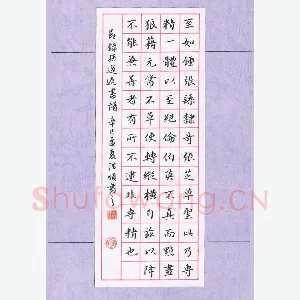 至如鍾繇隸奇張芝草聖此乃專
精一體以至絕倫伯英不真而點畫
狼藉元常不草使轉縱橫自茲以降
不能兼善者有所不逮非專精也
節錄孫過庭書譜 辛巳孟夏
Shufawang.CN